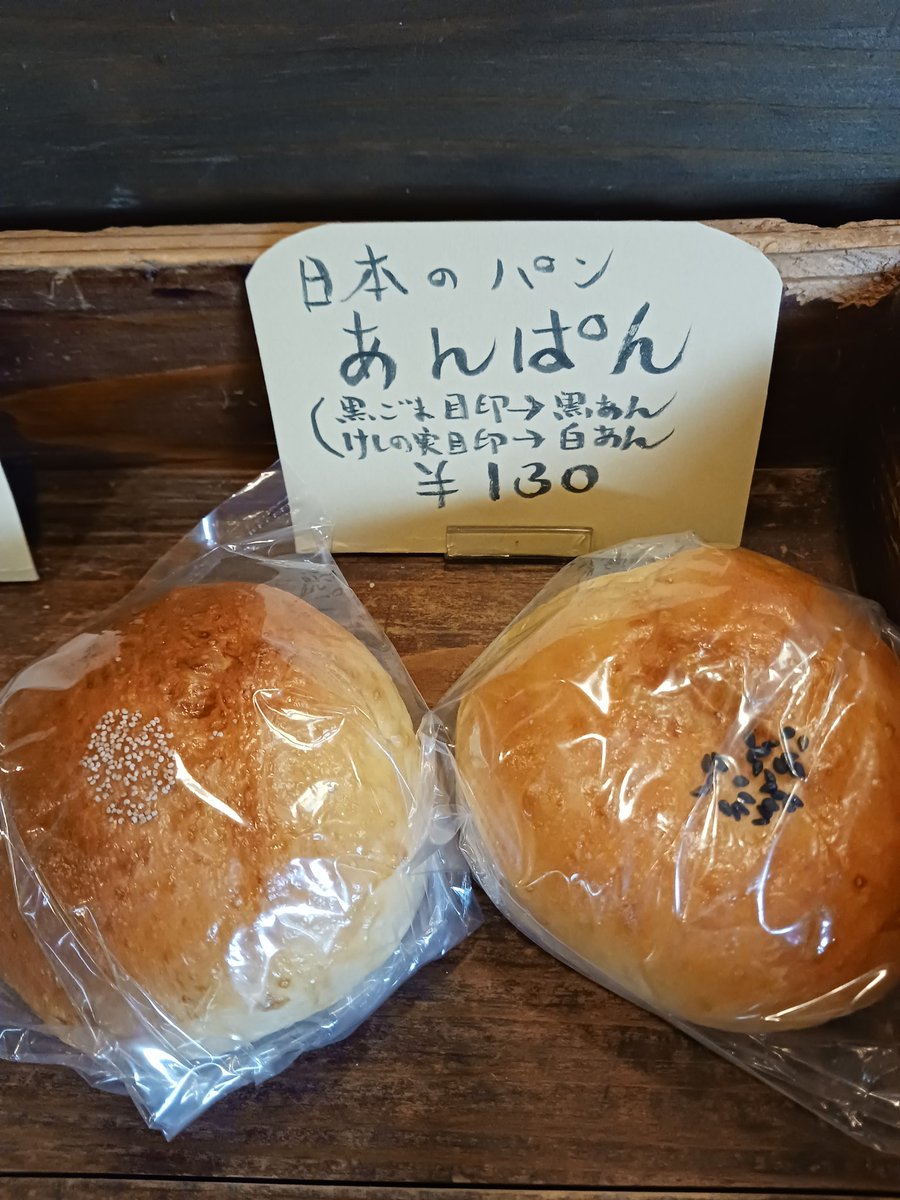 日本のパン
あんぱん
(黒ごま目印→黒あん
(けしの実目印→白あん
¥130